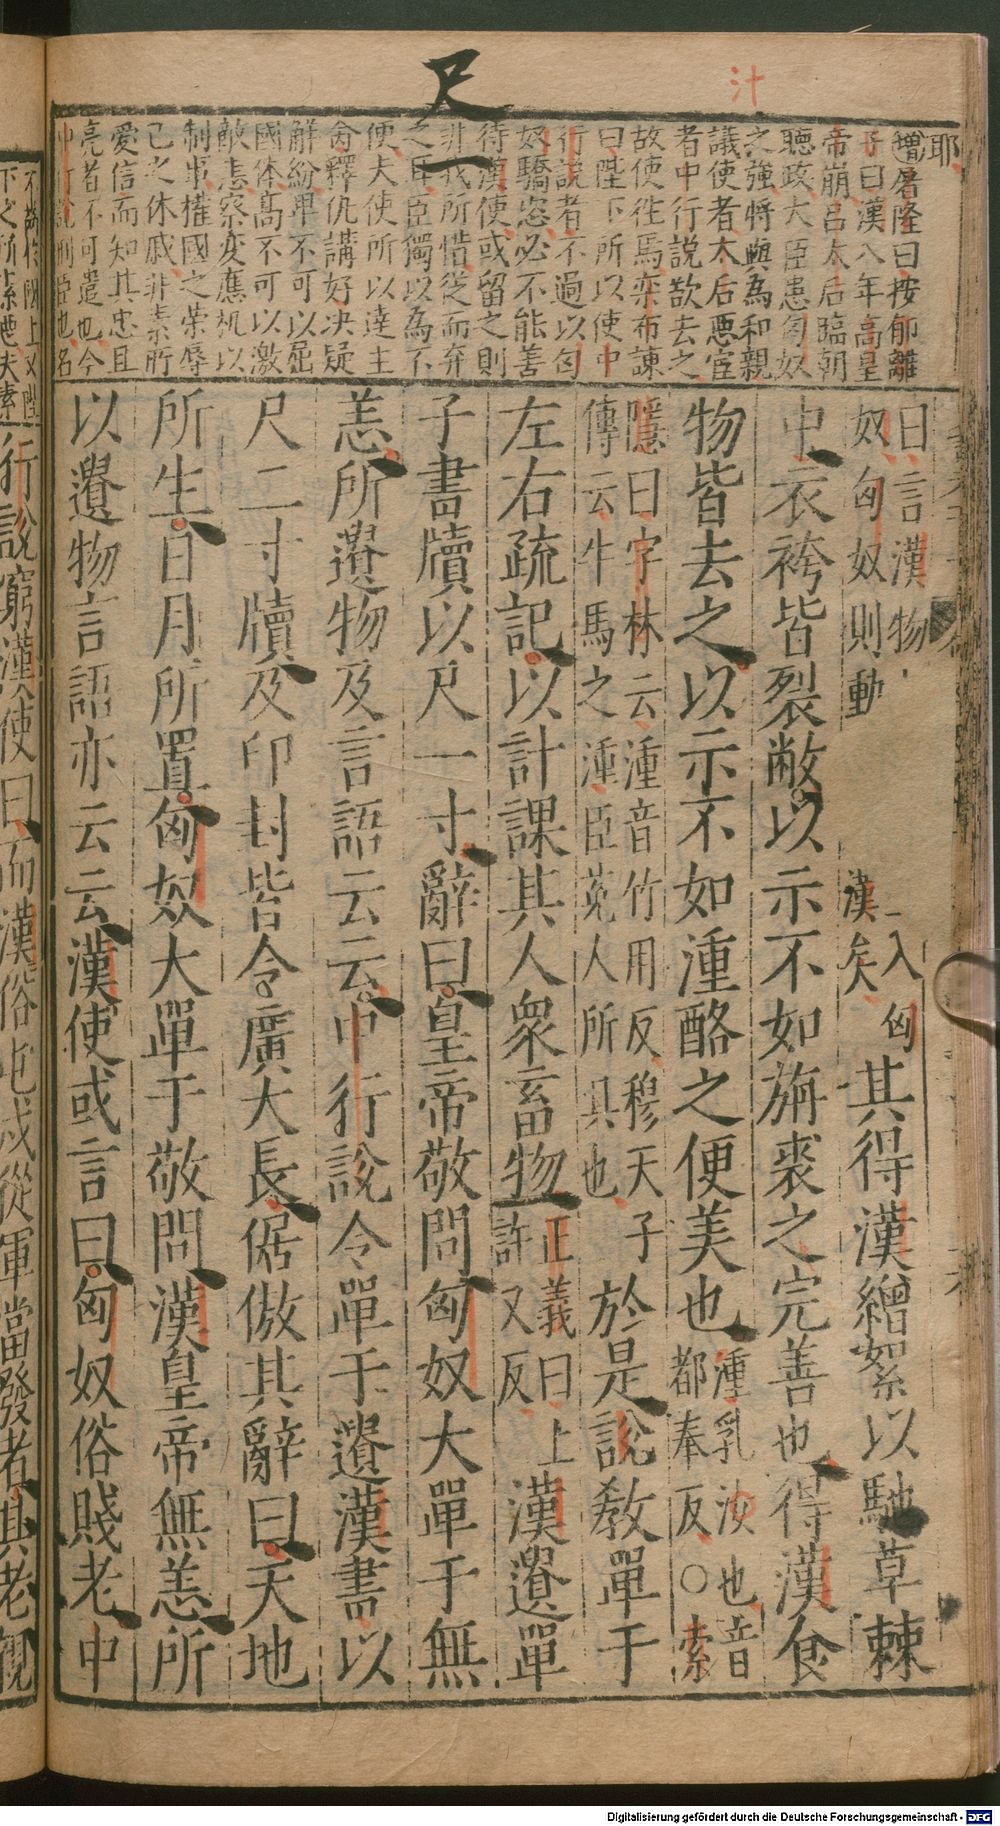 尺一
汁
耶
增屠隆曰按郁離
子曰漢八年高皇
帝崩呂太后臨朝
聽政大臣患匈奴
之強將與為和親
議使者太后惡宦
者中行說欲去之
故使往焉奕布諫
曰陛下所以使中
行說者不過以匈
奴驕恣必不能善
待漢使或留之則
非我所惜從而弃
之耳臣獨以為不
便夫使所以達主
命釋仇講好决疑
解紛畢不可以屈
國体高不可以激
敵恚察変應机以
制事權國之榮辱
已之休戚非素所
愛信而知其忠且
亮者不可遣也今
中行說刑臣也名
曰言漢物 一入匈
奴匈奴則動 漢矣
其得漢繒絮以馳草棘
中衣袴皆裂敝以示不如旃裘之完善也得漢食
物皆去之以示不如湩酪之便美也
湩乳汝也音
都奉反○索
隱曰字林云湩音竹用反穆天子
傳云牛馬之湩臣菟人所具也
於是說敎單于
左右疏記以計課其人衆畜物
正義曰上
許又反
漢遺單
于書牘以尺一寸辭曰皇帝敬問匈奴大單于無
恙所遺物及言語云云中行說令單于遺漢書以
尺二寸牘及印封皆令廣大長倨傲其辭曰天地
所生日月所置匈奴大單于敬問漢皇帝無恙所
以遺物言語亦云云漢使或言曰匈奴俗賤老中
行說窮漢使曰而漢俗屯戍從軍當發者其老親
Digitalisierung gefördert durch die Deutsche Forschungsgemeinschaft - DFG